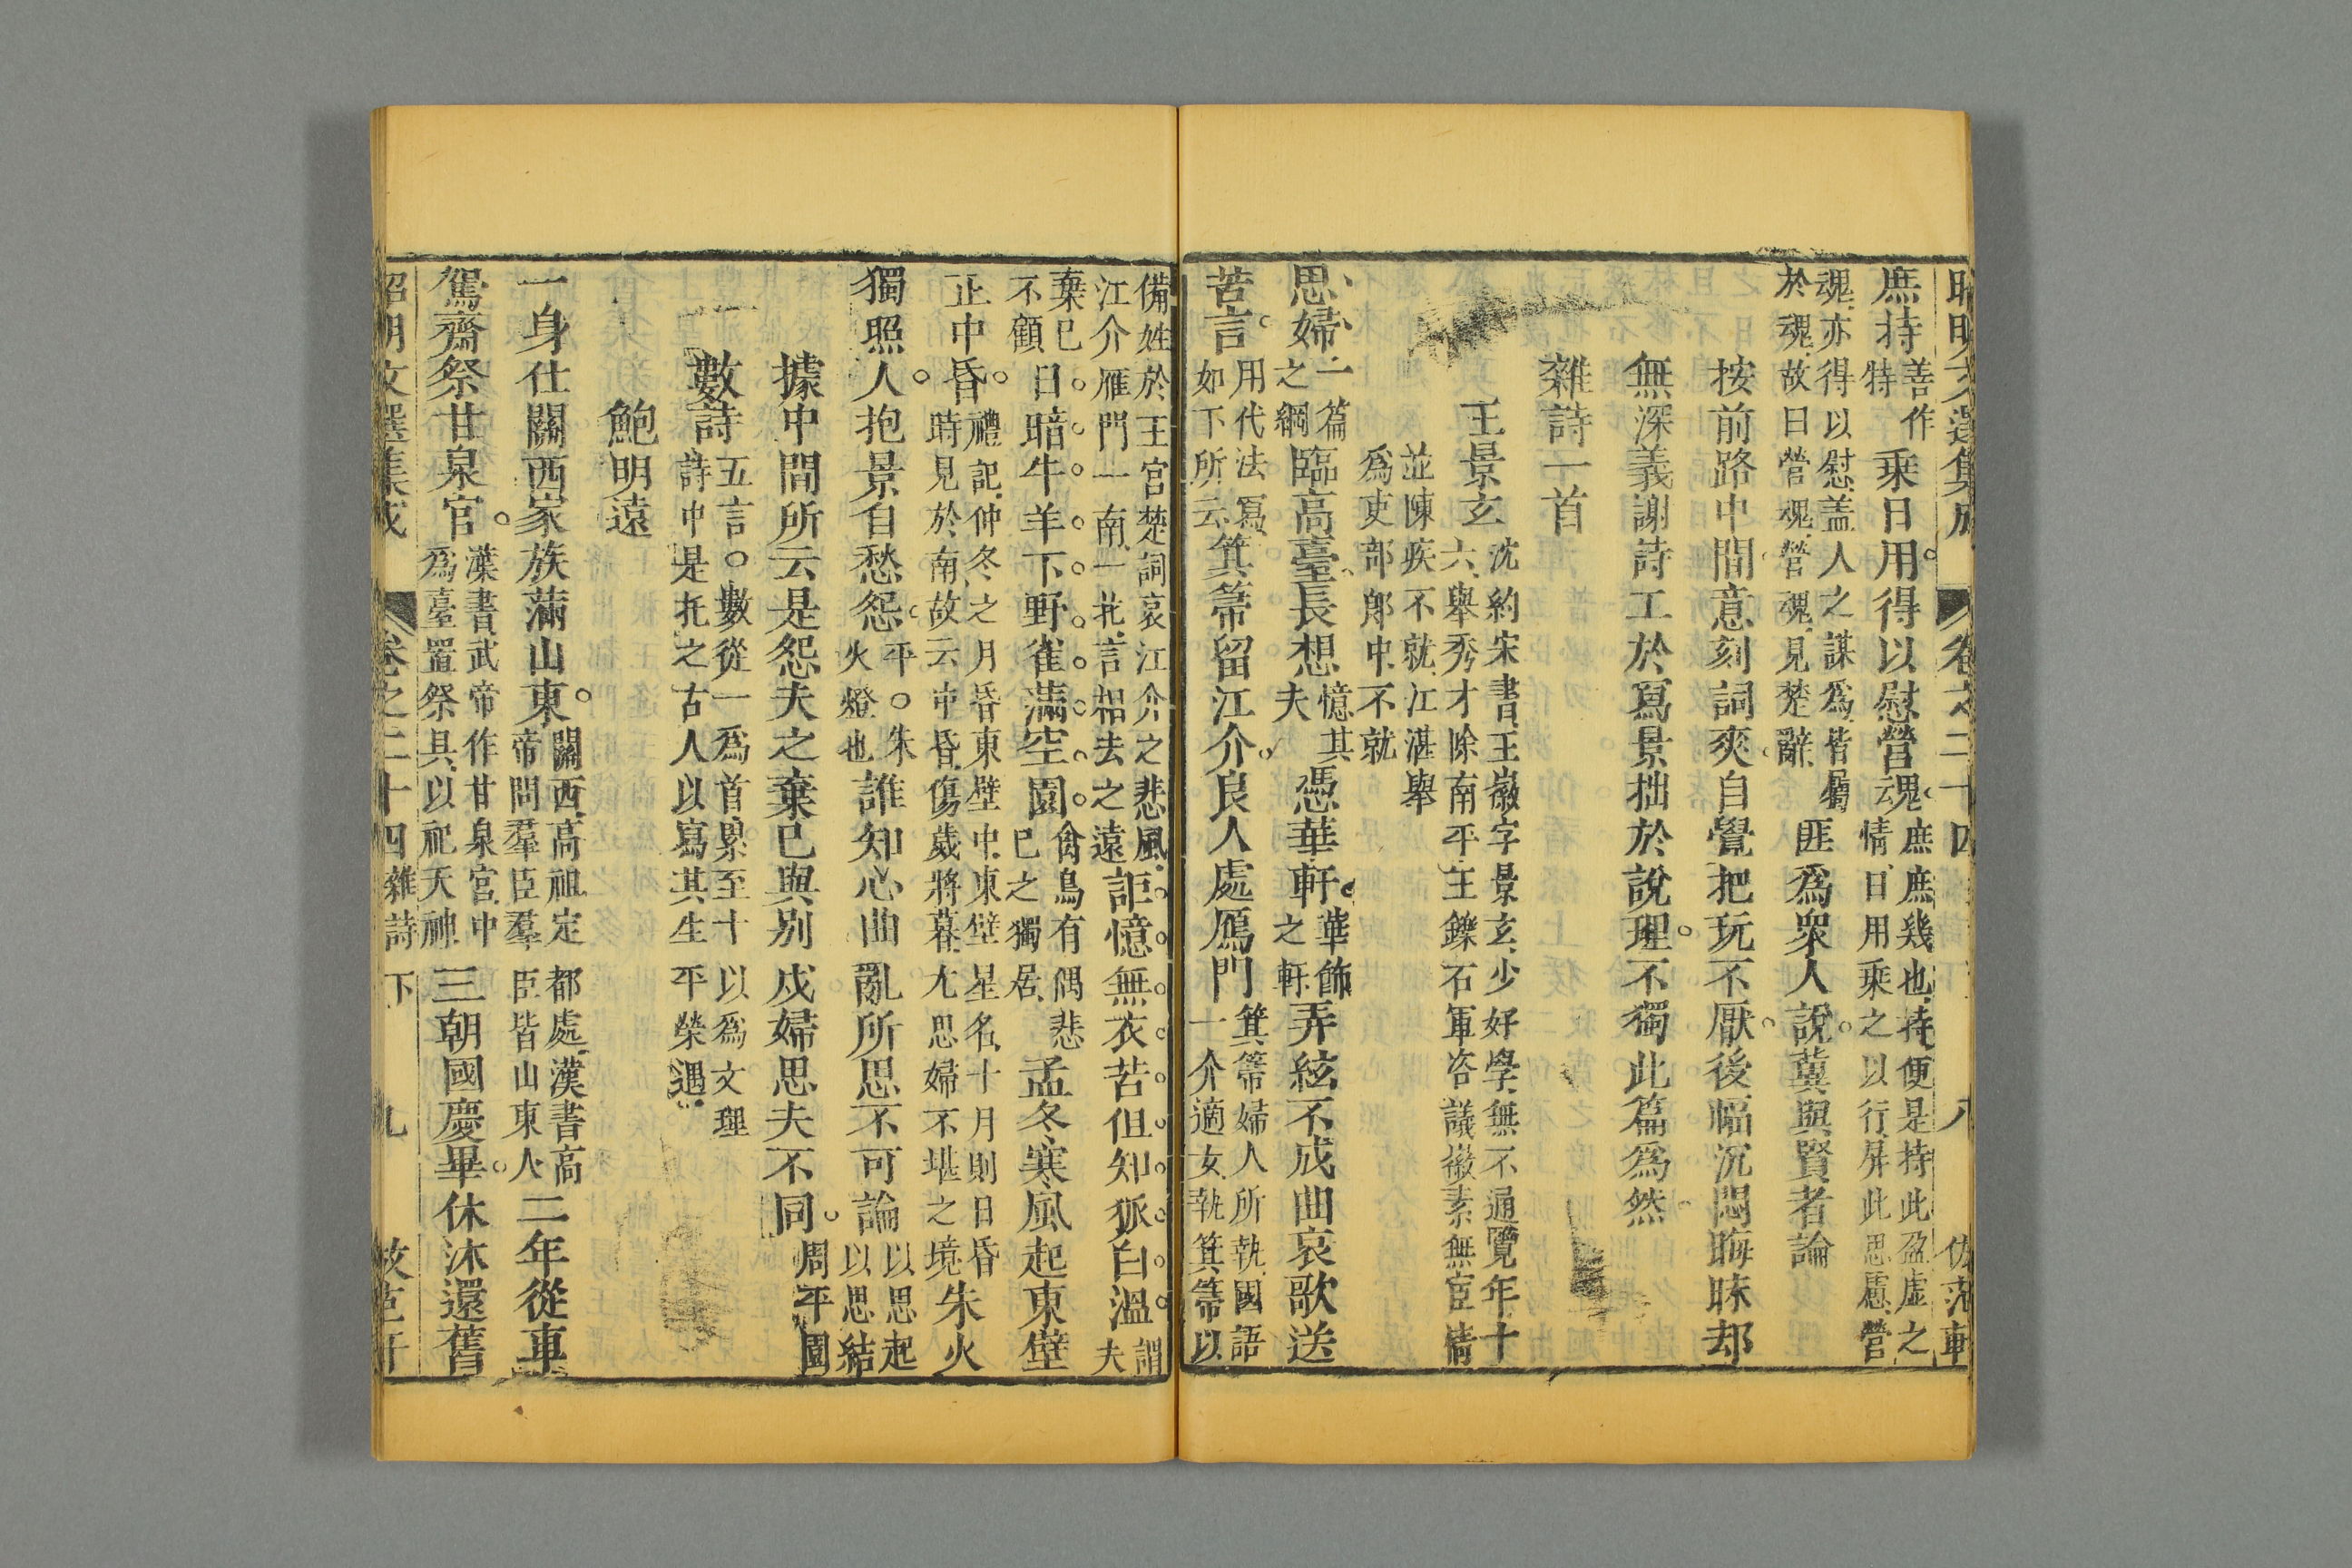 昭明文選集成 卷之二十四 八
庶持善作特乗日用得以慰營魂庶庶幾也持便是持此盈虛之情日用乗之以行屏此思慮營
魂亦得以慰盖人之謀爲皆屬於魂故曰營魂營魂見楚辭匪爲衆人說冀與賢者論
按前路中間意刻詞爽自覺把玩不厭後幅沉悶晦昧却
無深義謝詩工於寫景拙於說理不獨此篇爲然
雜詩一首
王景玄沈約宋書王徽字景玄少好學無不通覽年十六舉秀才除南平王鑠右軍咨議徽素無宦情
並陳疾不就江湛舉爲吏部郎中不就
思婦二篇之綱臨高臺長想憶其夫憑華軒華飾之軒弄絃不成曲哀歌送
苦言用代法寫如下所云箕箒留江介良人處鴈門箕箒婦人所執國語一介適女執箕箒以
備姓於王宮楚詞哀江介之悲風江介雁門一南一北言相去之遠詎憶無衣苦但知狐白溫謂夫
棄已不顧日暗牛羊下野雀滿空園禽鳥有偶悲已之獨居孟冬寒風起東壁
正中昏禮記仲冬之月昏東壁中東壁星名十月則日昏時見於南故云中昏傷歲將暮尤思婦不堪之境朱火
獨照人抱景自愁怨平朱火燈也誰知心曲亂所思不可論以思起以思結
據中間所云是怨夫之棄已與别戍婦思夫不同周平園
數詩五言數從一爲首累至十以爲文理詩中是托之古人以寫其生平榮遇
鮑明遠
一身仕關西家族滿山東關西高祖定都處漢書高帝問羣臣羣臣皆山東人二年從車
駕齋祭甘泉宮漢書武帝作甘泉宮中爲臺置祭具以祀天神三朝國慶畢休沐還舊
昭明文選集成 卷之二十四雜詩下 九